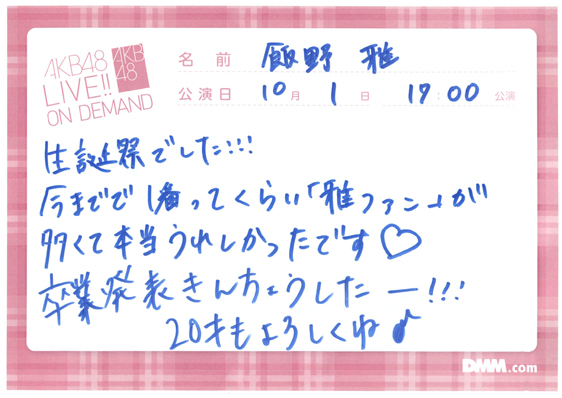 AKB48
LIVE!!
ON DEMAND
AKB
48
名前 飯野 雅
公演日 10月 1日 17:00 公演
生誕祭でした!!!
今までで1番ってくらい「雅ファン」が
多くて本当うれしかったです♡
卒業発表きんちょうしたー!!!
20才もよろしくね♪
DMM.com